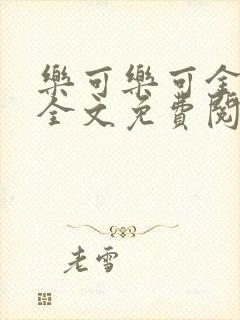 樂可樂可全
全文免費閱
老雪